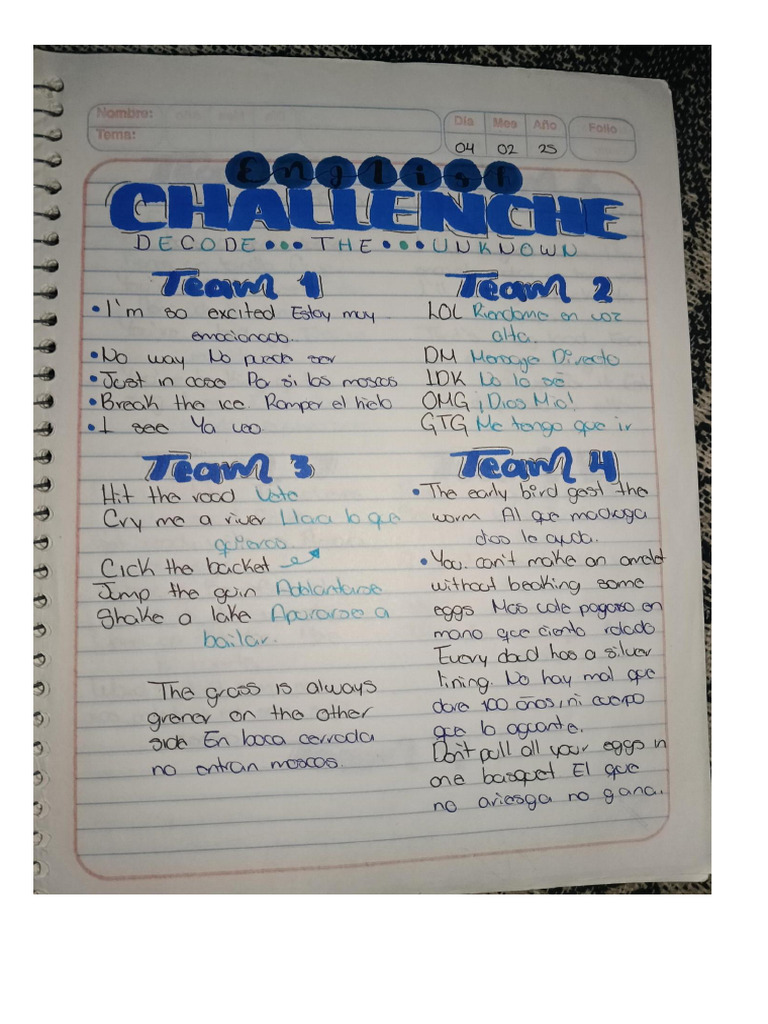 Nombre:
Tema:
Día Mes Año Folio
04 02 25
English
CHALLENCHE
DECODE... THE... UNKNOWN
Team 1
• I'm so excited Estoy muy
emocionado.
• No way No puede ser
• Just in case Por si las moscas
• Break the ice. Romper el hielo
• I see Ya veo
Team 2
LOL Riendome en voz
alta.
DM Mensaje Directo
IDK No lo sé
OMG ¡Dios Mio!
GTG Me tengo que ir
Team 3
Hit the road Vete
Cry me a river Llora lo que
quieras
Cick the backet
Jump the gun Adelantarse
Shake a lake Apurarse a
bailar.
The grass is always
grener on the other
side En boca cerrada
no entran moscas.
Team 4
• The early bird gest the
worm Al que madruga
dios le ayuda.
• You. can't make an omelet
without beaking some
eggs Mas vale pajaro en
mano que ciento volado
Every dad has a silver
lining. No hay mal que
dure 100 años, ni cuerpo
que lo aguante.
Don't pull all your eggs in
one basquet El que
no ariesga no gana.